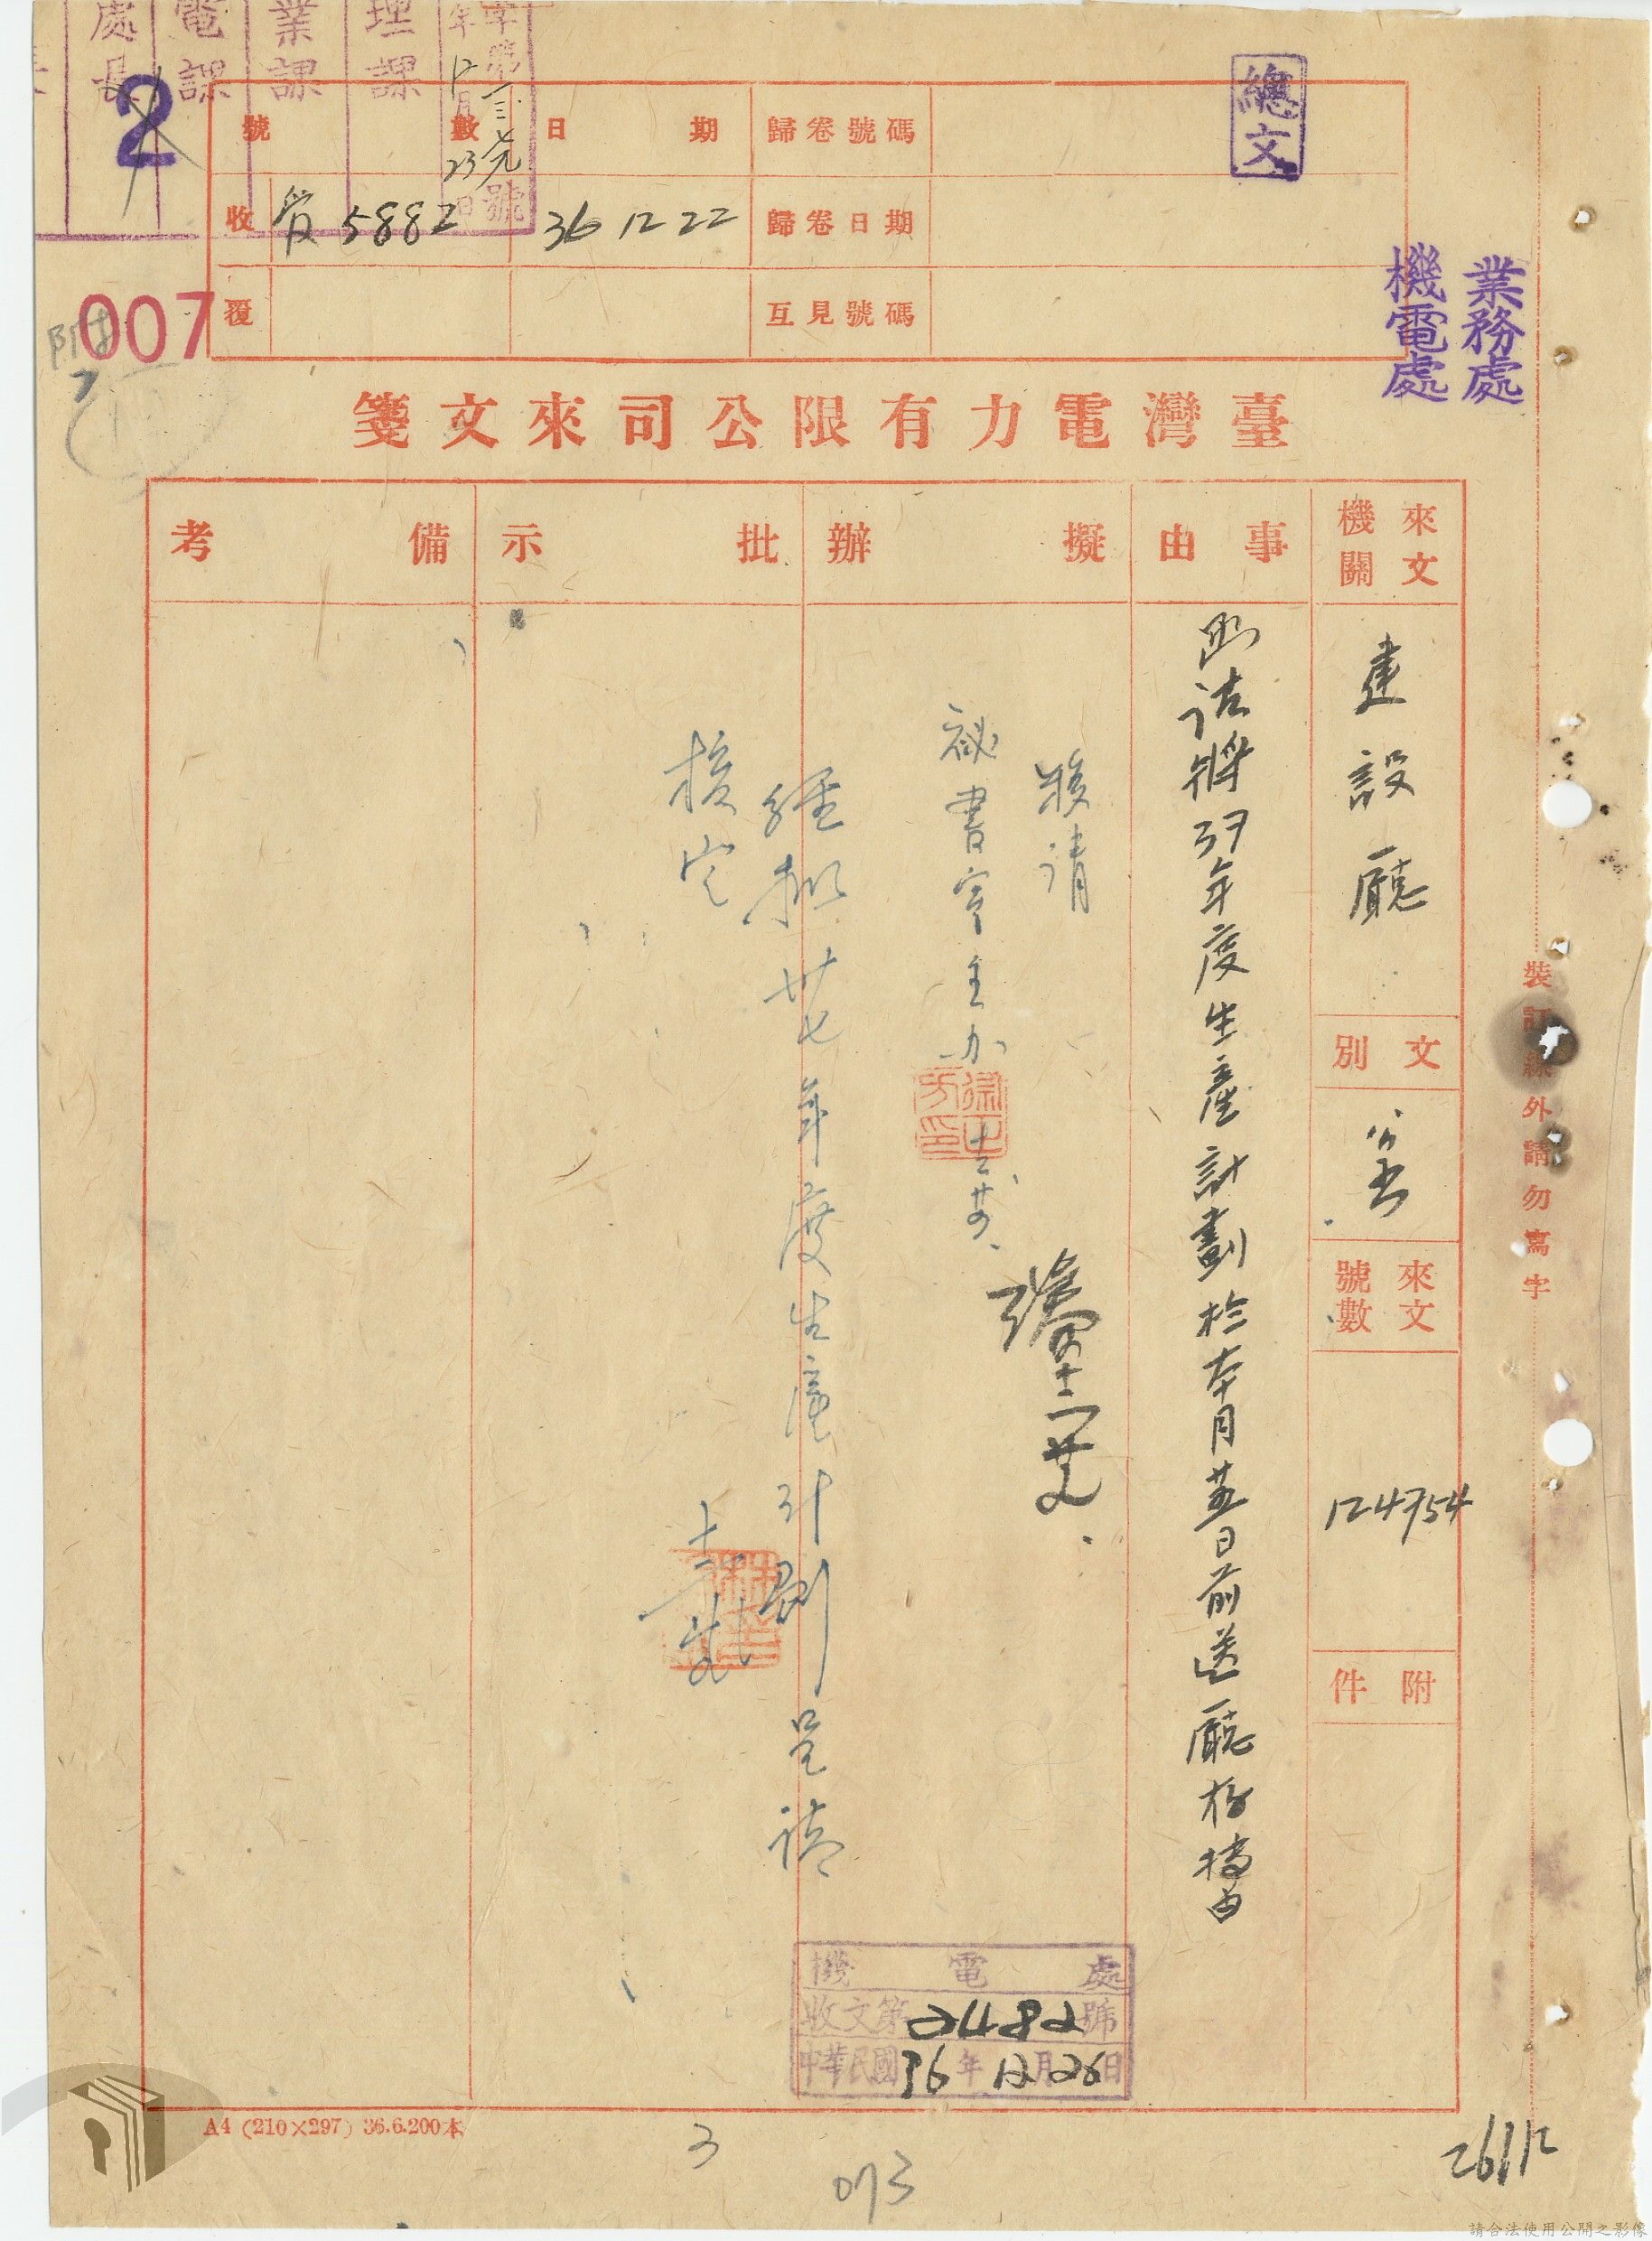 處長
電課
業課
理課
字第三三七九號
年12月23日
2
總文
號數
日期
歸卷號碼
收
5882
36 12 22
歸卷日期
覆
互見號碼
007
附
7
業務處
機電處
臺灣電力有限公司來文箋
來文機關
事由
擬辦
批示
備考
建設廳
文別
公函
來文號數
124754
附件
函請將37年度生產計劃於本月廿五日前送廳核擬由
移請
秘書室主办
經擬卅七年度生產計劃呈請
核定
裝訂線外請勿寫字
機電處
收文第2482號
中華民國36年12月26日
A4 (210×297) 36.6.200本
3
073
26/12
請合法使用公開之影像